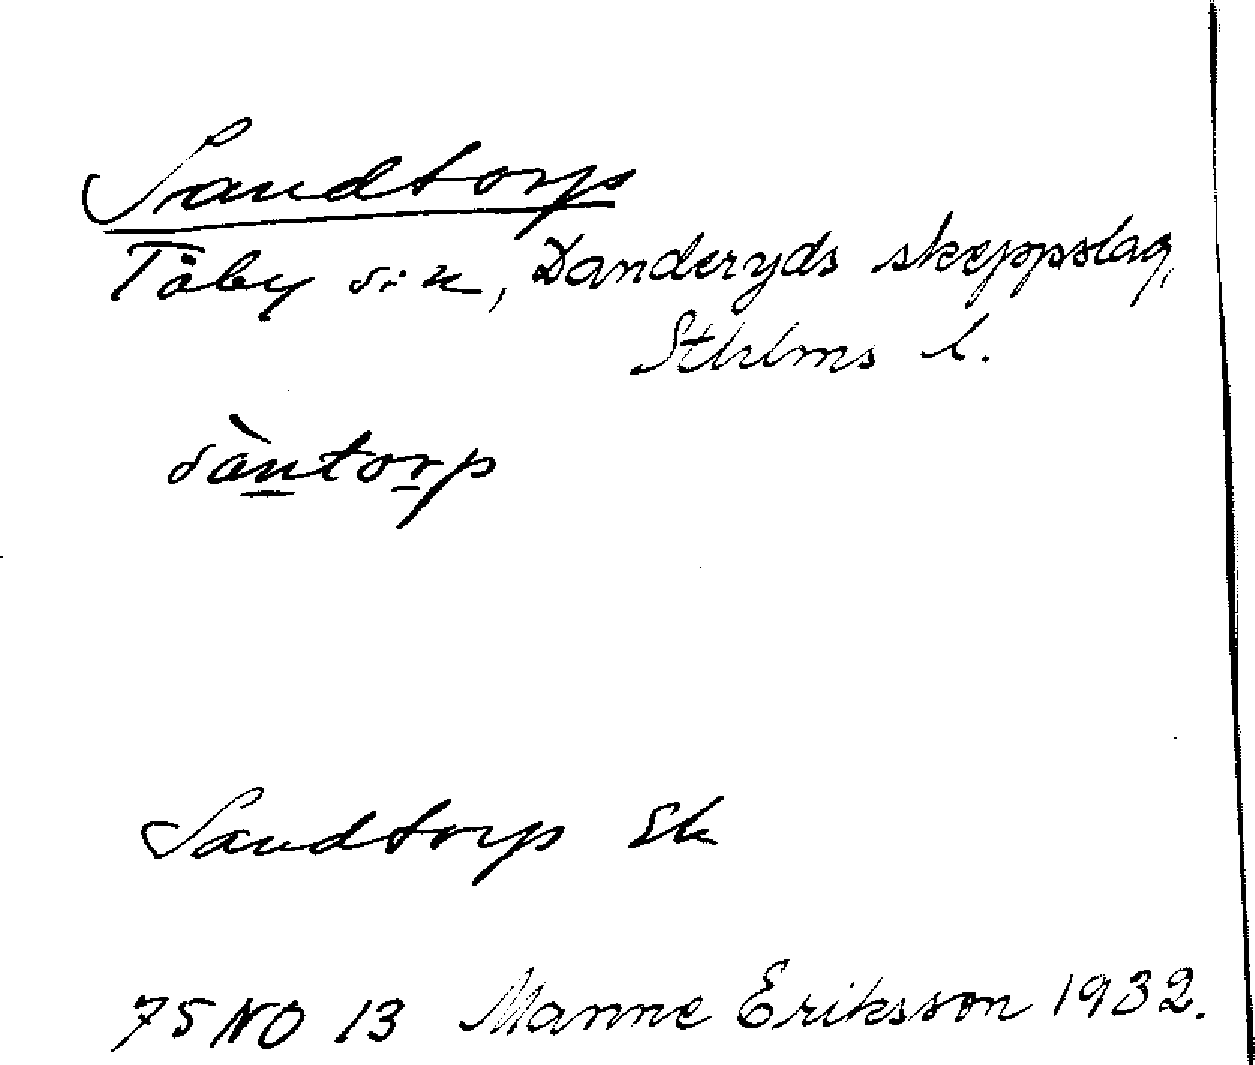 Sandtorp
Täby s:n, Danderyds skeppslag,
Sthlms l.
sàntorp
Sandtorp Ek
75 NO 13 Manne Eriksson 1932.